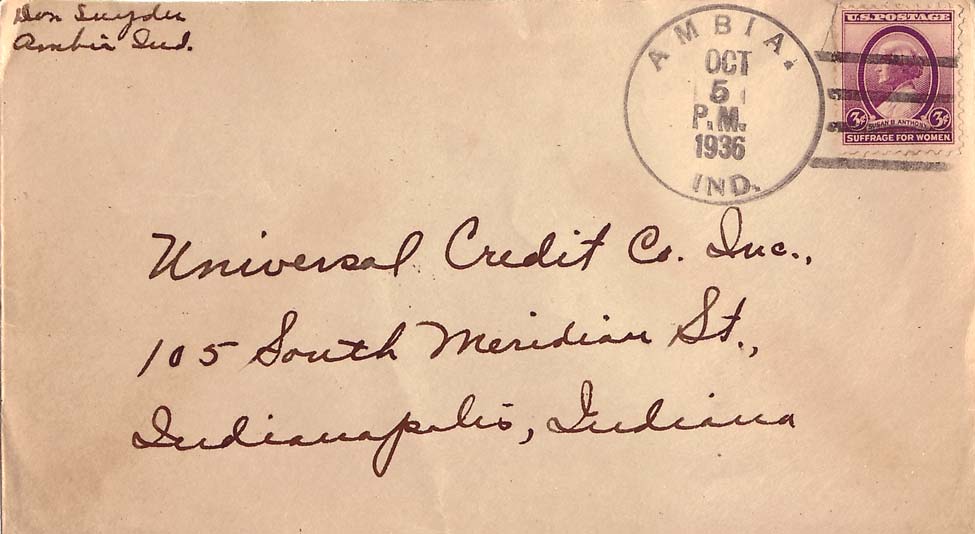 Don Snyder
Ambia Ind.
AMBIA.
OCT
5
P.M.
1936
IND.
U.S. POSTAGE
3¢ SUSAN B. ANTHONY 3¢
SUFFRAGE FOR WOMEN
Universal Credit Co. Inc.,
105 South Meridian St.,
Indianapolis, Indiana